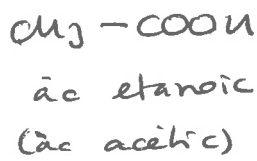 CH3 - COOH
àc etanoic
(àc acètic)